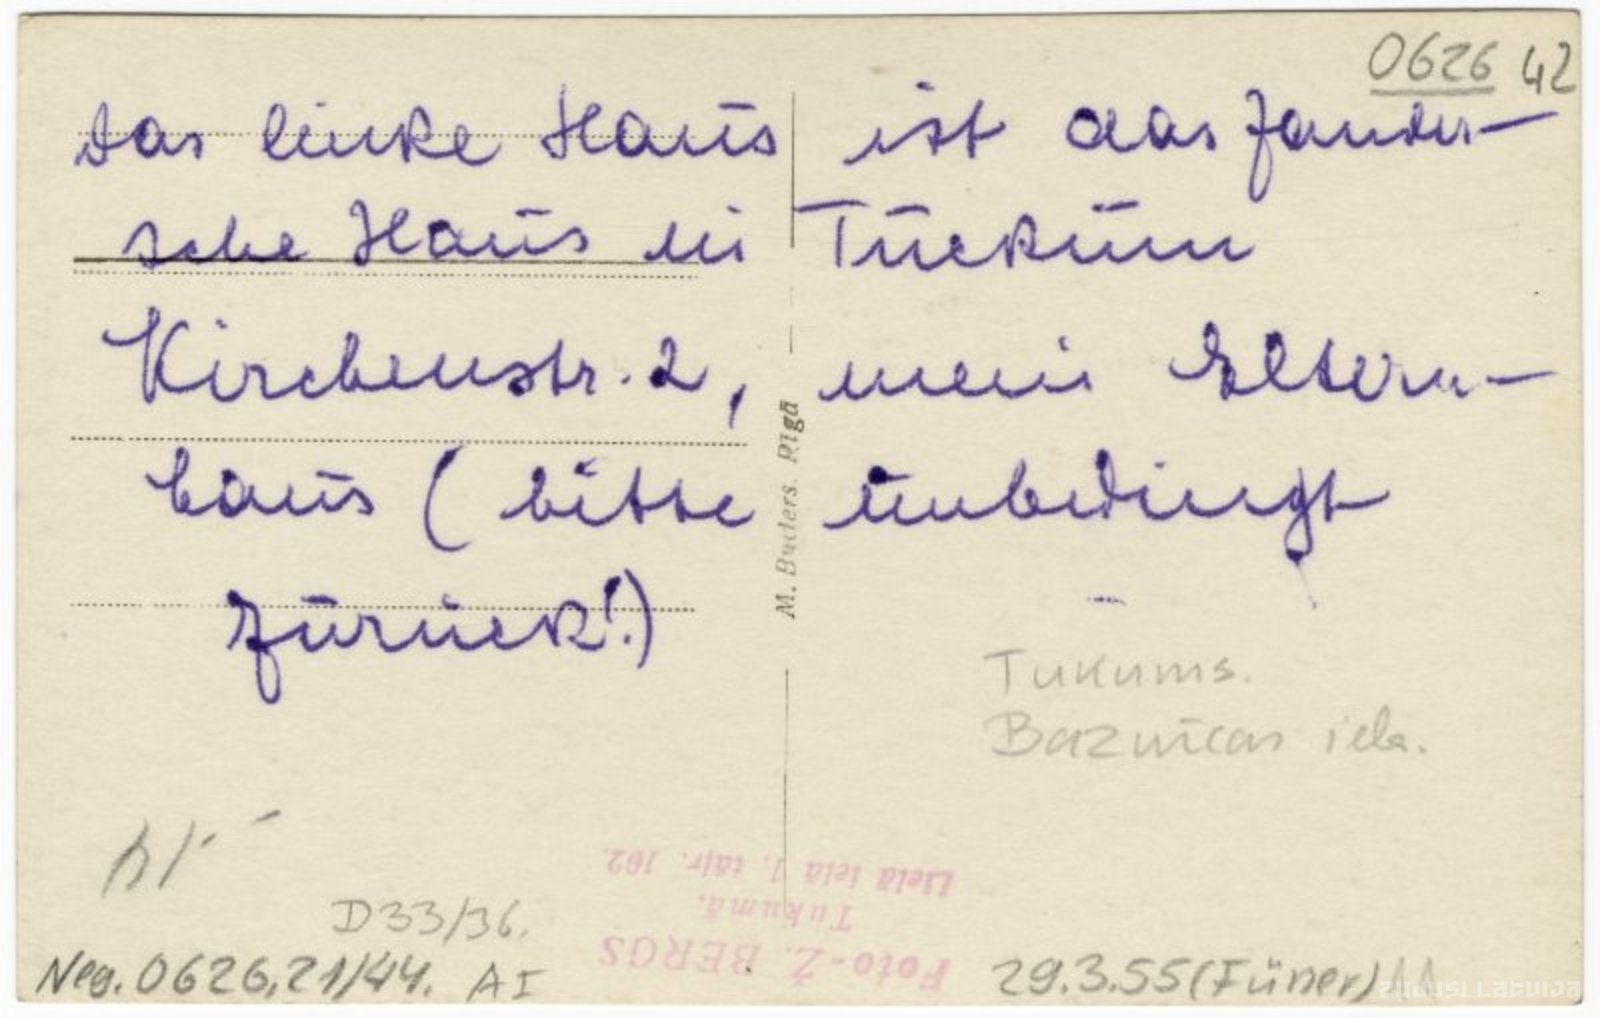 0626 42
Das linke Haus ist das Zander-
sche Haus in Tuckum
Kirchenstr. 2, mein Eltern-
haus (bitte unbedingt
zurück!)
M. Buders. Rīgā
Tukums.
Baznīcas iela.
D33/36.
Neg. 0626,21/44. AI
Foto-Ž. BERGS
Tukumā.
Lielā ielā 1, tāļr. 102.
29.3.55 (Füner)
zudusi Latvija